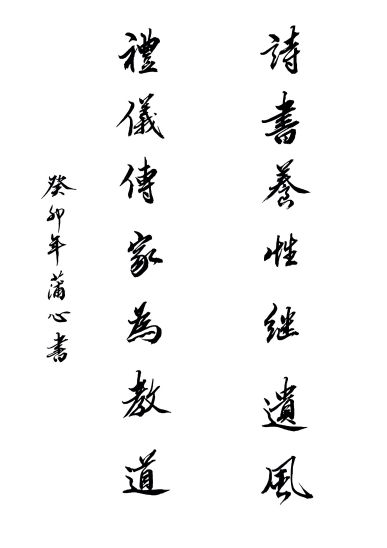 詩書養性継遺風
禮儀傳家為教道
癸卯年蒲心書